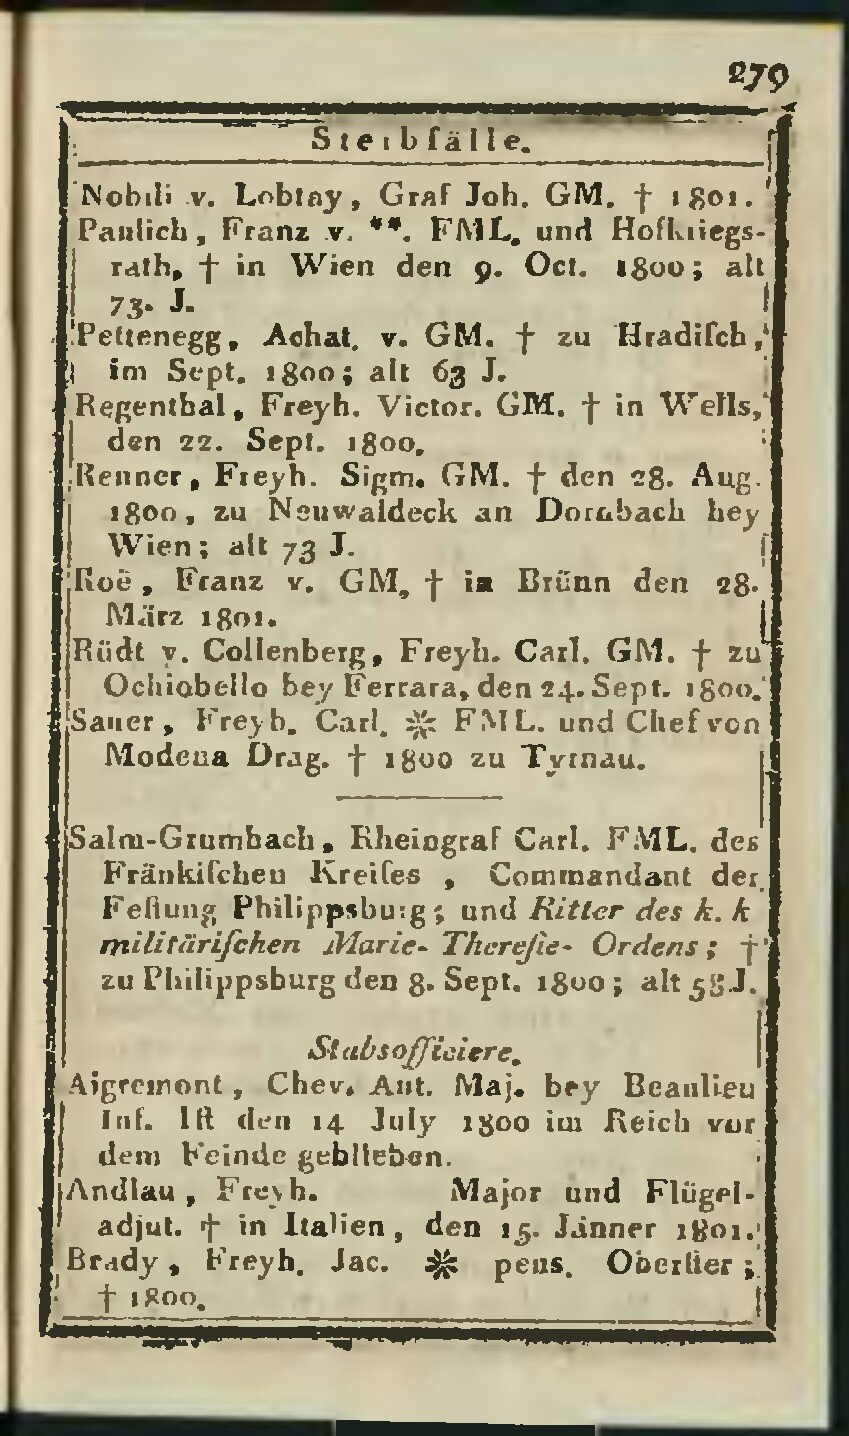 279
Sterbfälle.
Nobili v. Lobtay, Graf Joh. GM. † 1801.
Paulich, Franz v. **. FML. und Hofkriegs-
rath, † in Wien den 9. Oct. 1800; alt
73. J.
Pettenegg, Achat. v. GM. † zu Hradiſch,
im Sept. 1800; alt 63 J.
Regenthal, Freyh. Victor. GM. † in Wells,
den 22. Sept. 1800.
Renner, Freyh. Sigm. GM. † den 28. Aug.
1800, zu Neuwaldeck an Dornbach bey
Wien; alt 73 J.
Roë, Franz v. GM, † in Brünn den 28.
März 1801.
Rüdt v. Collenberg, Freyh. Carl. GM. † zu
Ochiobello bey Ferrara, den 24. Sept. 1800.
Sauer, Freyh. Carl. ✼ FML. und Chef von
Modena Drag. † 1800 zu Tyrnau.
Salm-Grumbach, Rheingraf Carl. FML. des
Fränkiſchen Kreiſes, Commandant der
Feſtung Philippsburg; und Ritter des k. k
militäriſchen Marie-Thereſie-Ordens; †
zu Philippsburg den 8. Sept. 1800; alt J.
Stabsofficiere.
Aigremont, Chev. Ant. Maj. bey Beaulieu
Inf. Iſt den 14 July 1800 im Reich vor
dem Feinde geblieben.
Andlau, Freyh. Major und Flügel-
adjut. † in Italien, den 15. Jänner 1801.
Brady, Freyh. Jac. ✼ pens. Oberſter;
† 1800.